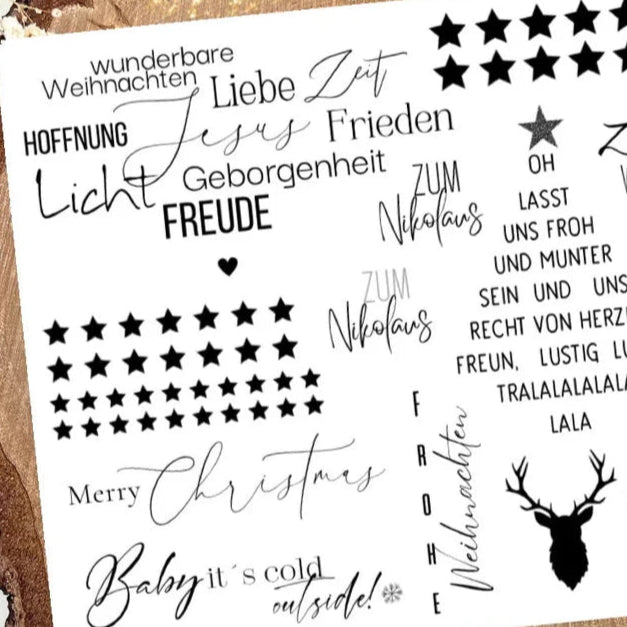 wunderbare
Weihnachten
Liebe Zeit
HOFFNUNG Jesus Frieden
Licht Geborgenheit
FREUDE
ZUM
Nikolaus
ZUM
Nikolaus
OH
LASST
UNS FROH
UND MUNTER
SEIN UND UNS
RECHT VON
FREUN, LUSTIG
LALA
Merry Christmas
Baby it´s cold
outside!
FROHE
Weihnachten